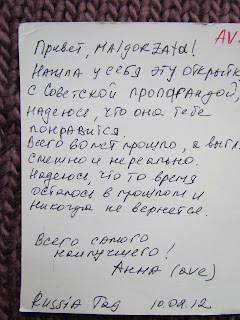 AV
Привет, MAlGORZAtA!
Нашла у себя эту открытк
с Советской пропагандой,
Надеюсь, что она тебе
понравится.
Всего 20 лет прошло, а выгл
смешно и нереально.
Надеюсь, что то время
осталось в прошлом и
никогда не вернется.
Всего самого
наилучшего!
Анна (ave)
RUSSIA Tag 10.09.12